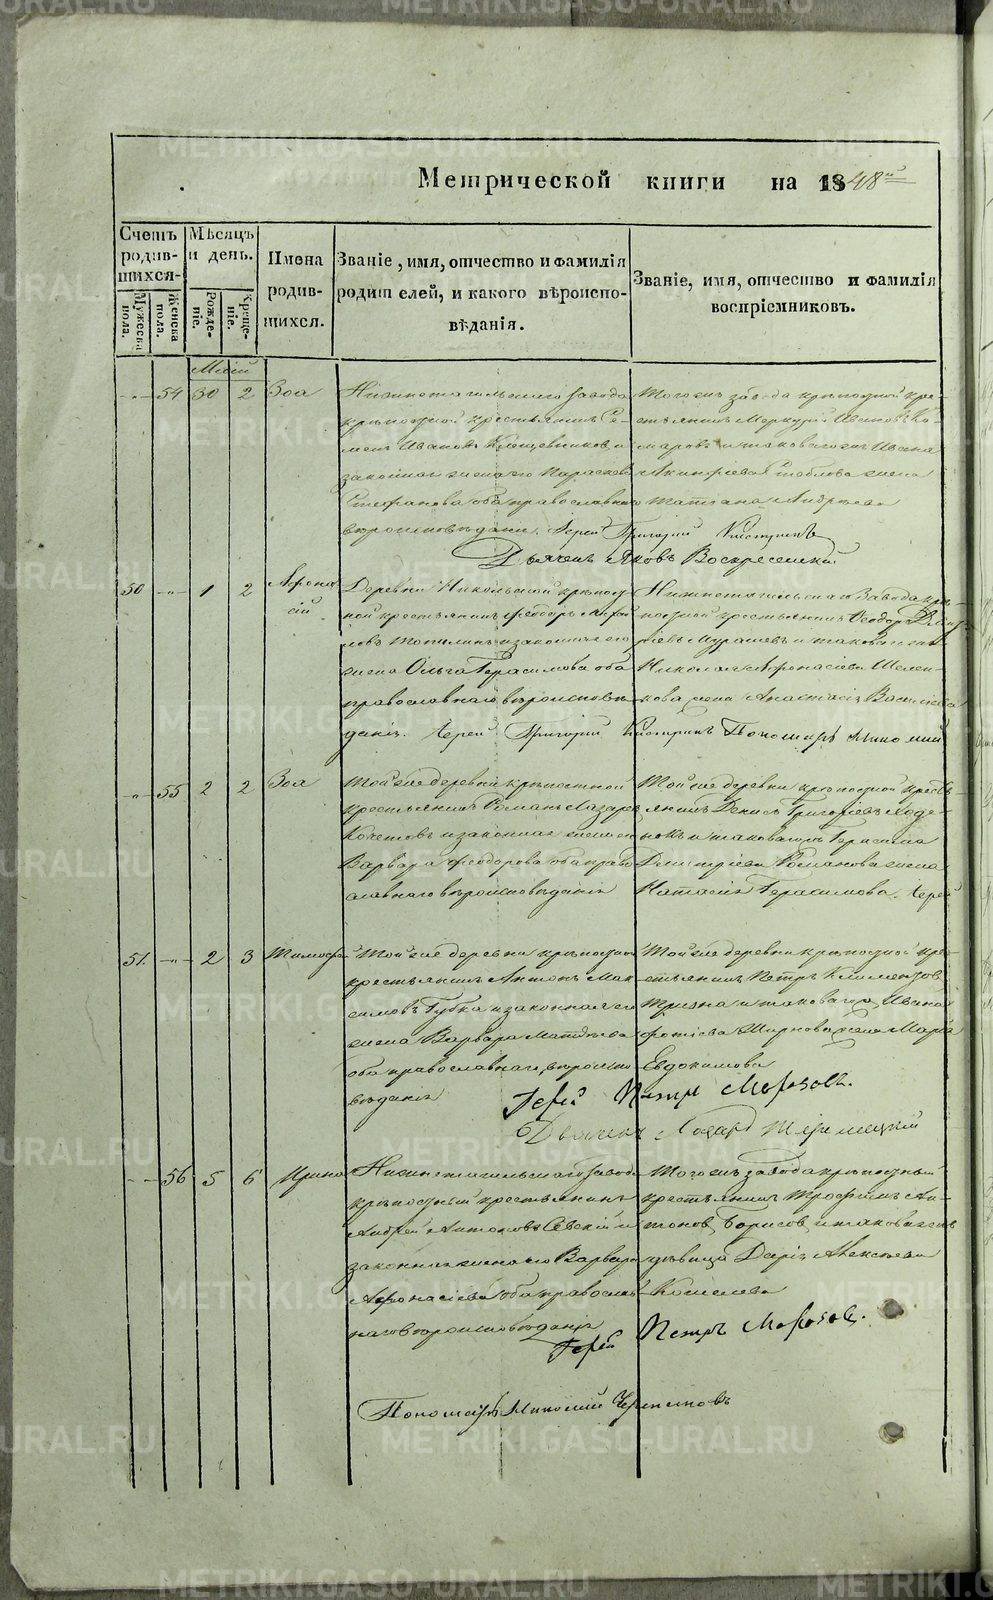 Метрической книги на 1848й
Счетъ родив-шихся.
Мужеска пола.
Женска пола.
Мѣсяцъ и день.
Рожде-ніе.
Креще-ніе.
Имена
родив-
шихся.
Званіе, имя, отчество и фамилія
родителей, и какого вѣроиспо-
вѣданія.
Званіе, имя, отчество и фамилія
воспріемниковъ.
Маій
54 30 2 Зоа
Нижнетагильскаго завода
крѣпостной крестьянинъ Се-
менъ Ивановъ и
законная жена его Параскева
Стефанова оба православнаго
вѣроисповѣданія.
Тогожъ завода крѣпостной кре-
стьянинъ Меркурій Ивановъ Ко-
маровъ и таковагожъ Ивана
Акинфіева жена
Татіана Андреева
Іерей Григорій
Дьячекъ Яковъ Воскресенскій
50 1 2 Афона
сій
Деревни Никольской крѣпост
ной крестьянинъ Феодоръ
и законная его
жена Ольга Герасимова оба
православнаго вѣроисповѣ
данія.
Нижнетагильскаго Завода крѣ-
постной крестьянинъ Феодоръ Дмит
ріевъ Мурашевъ и таковагожъ
Николая Афонасіева Шелен-
кова жена Анастасія Васильева
Іерей Григорій Пономарь
55 2 2 Зоа
Той же деревни крѣпостной
крестьянинъ Романъ Лазаревъ
Кочетовъ и законная жена его
Варвара Феодорова оба право
славнаго вѣроисповѣданія
Той же деревни крѣпостной кресть
янинъ Денисъ Григоріевъ
и таковагожъ
Дмитріева Романова жена
Наталія Герасимова. Іерей
51. 2 3 Тимофей
Той же деревни крѣпостной
крестьянинъ Антонъ Мак
симовъ Губка и законная его
жена Варвара Матвѣева
оба православнаго вѣроиспо
вѣданія
Той же деревни крѣпостной кре-
стьянинъ Петръ Климентов
Тризна и таковагожъ Ивана
Фотіева жена Марія
Евдокимова
Іерей Петръ Морозовъ.
Дьячекъ Лазарь
56 5 6 Ирина
Нижнетагильскаго Завода
крѣпостный крестьянинъ
Андрей Антоновъ Севскій и
законная жена его Варвара
Афонасіева оба православ
наго вѣроисповѣданія
Тогожъ завода крѣпостный
крестьянинъ Трофимъ Ан-
тонов Борисов и таковагожъ
дѣвица Дарія Алексѣева
Кошелева
Іерей Петръ Морозов.
Пономарь Черепановъ
METRIKI.GASO-URAL.RU